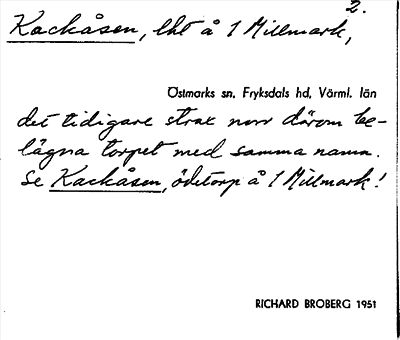 2.
Kackåsen, lht å 1 Millmark,
Östmarks sn, Fryksdals hd, Värml. län
det tidigare strax norr därom be-
lägna torpet med samma namn.
Se Kackåsen, ödetorp å 1 Millmark!
RICHARD BROBERG 1951